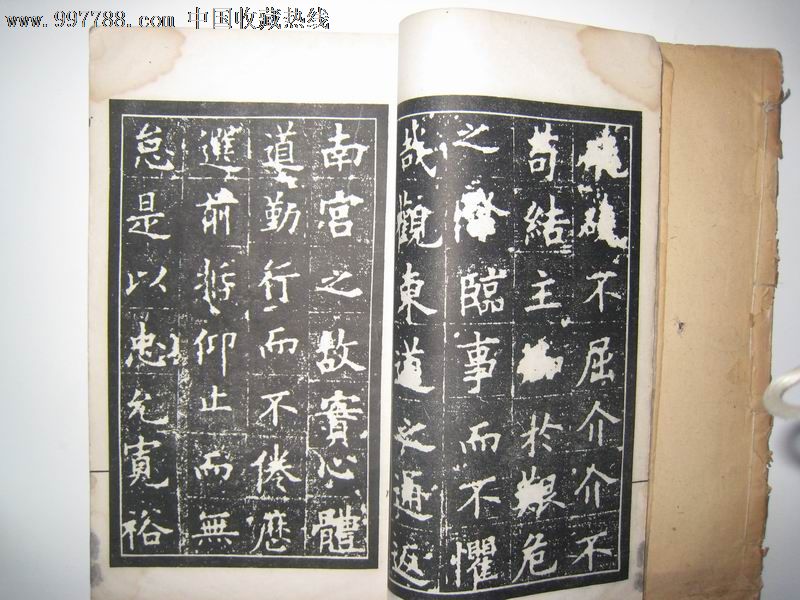 www.997788.com 中国收藏热线
硗不屈介介不
苟结主於艱危
之際臨事而不懼
哉觀東道之通返
南宫之故實心體
道勤行而不倦應
選前哲仰止而無
怠是以忠允寬裕